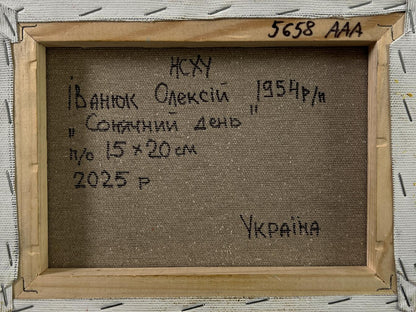 5658 AAA
НСХУ
Іванюк Олексій 1954р/н
„Сонячний день"
п/о 15×20 см
2025 р
Україна